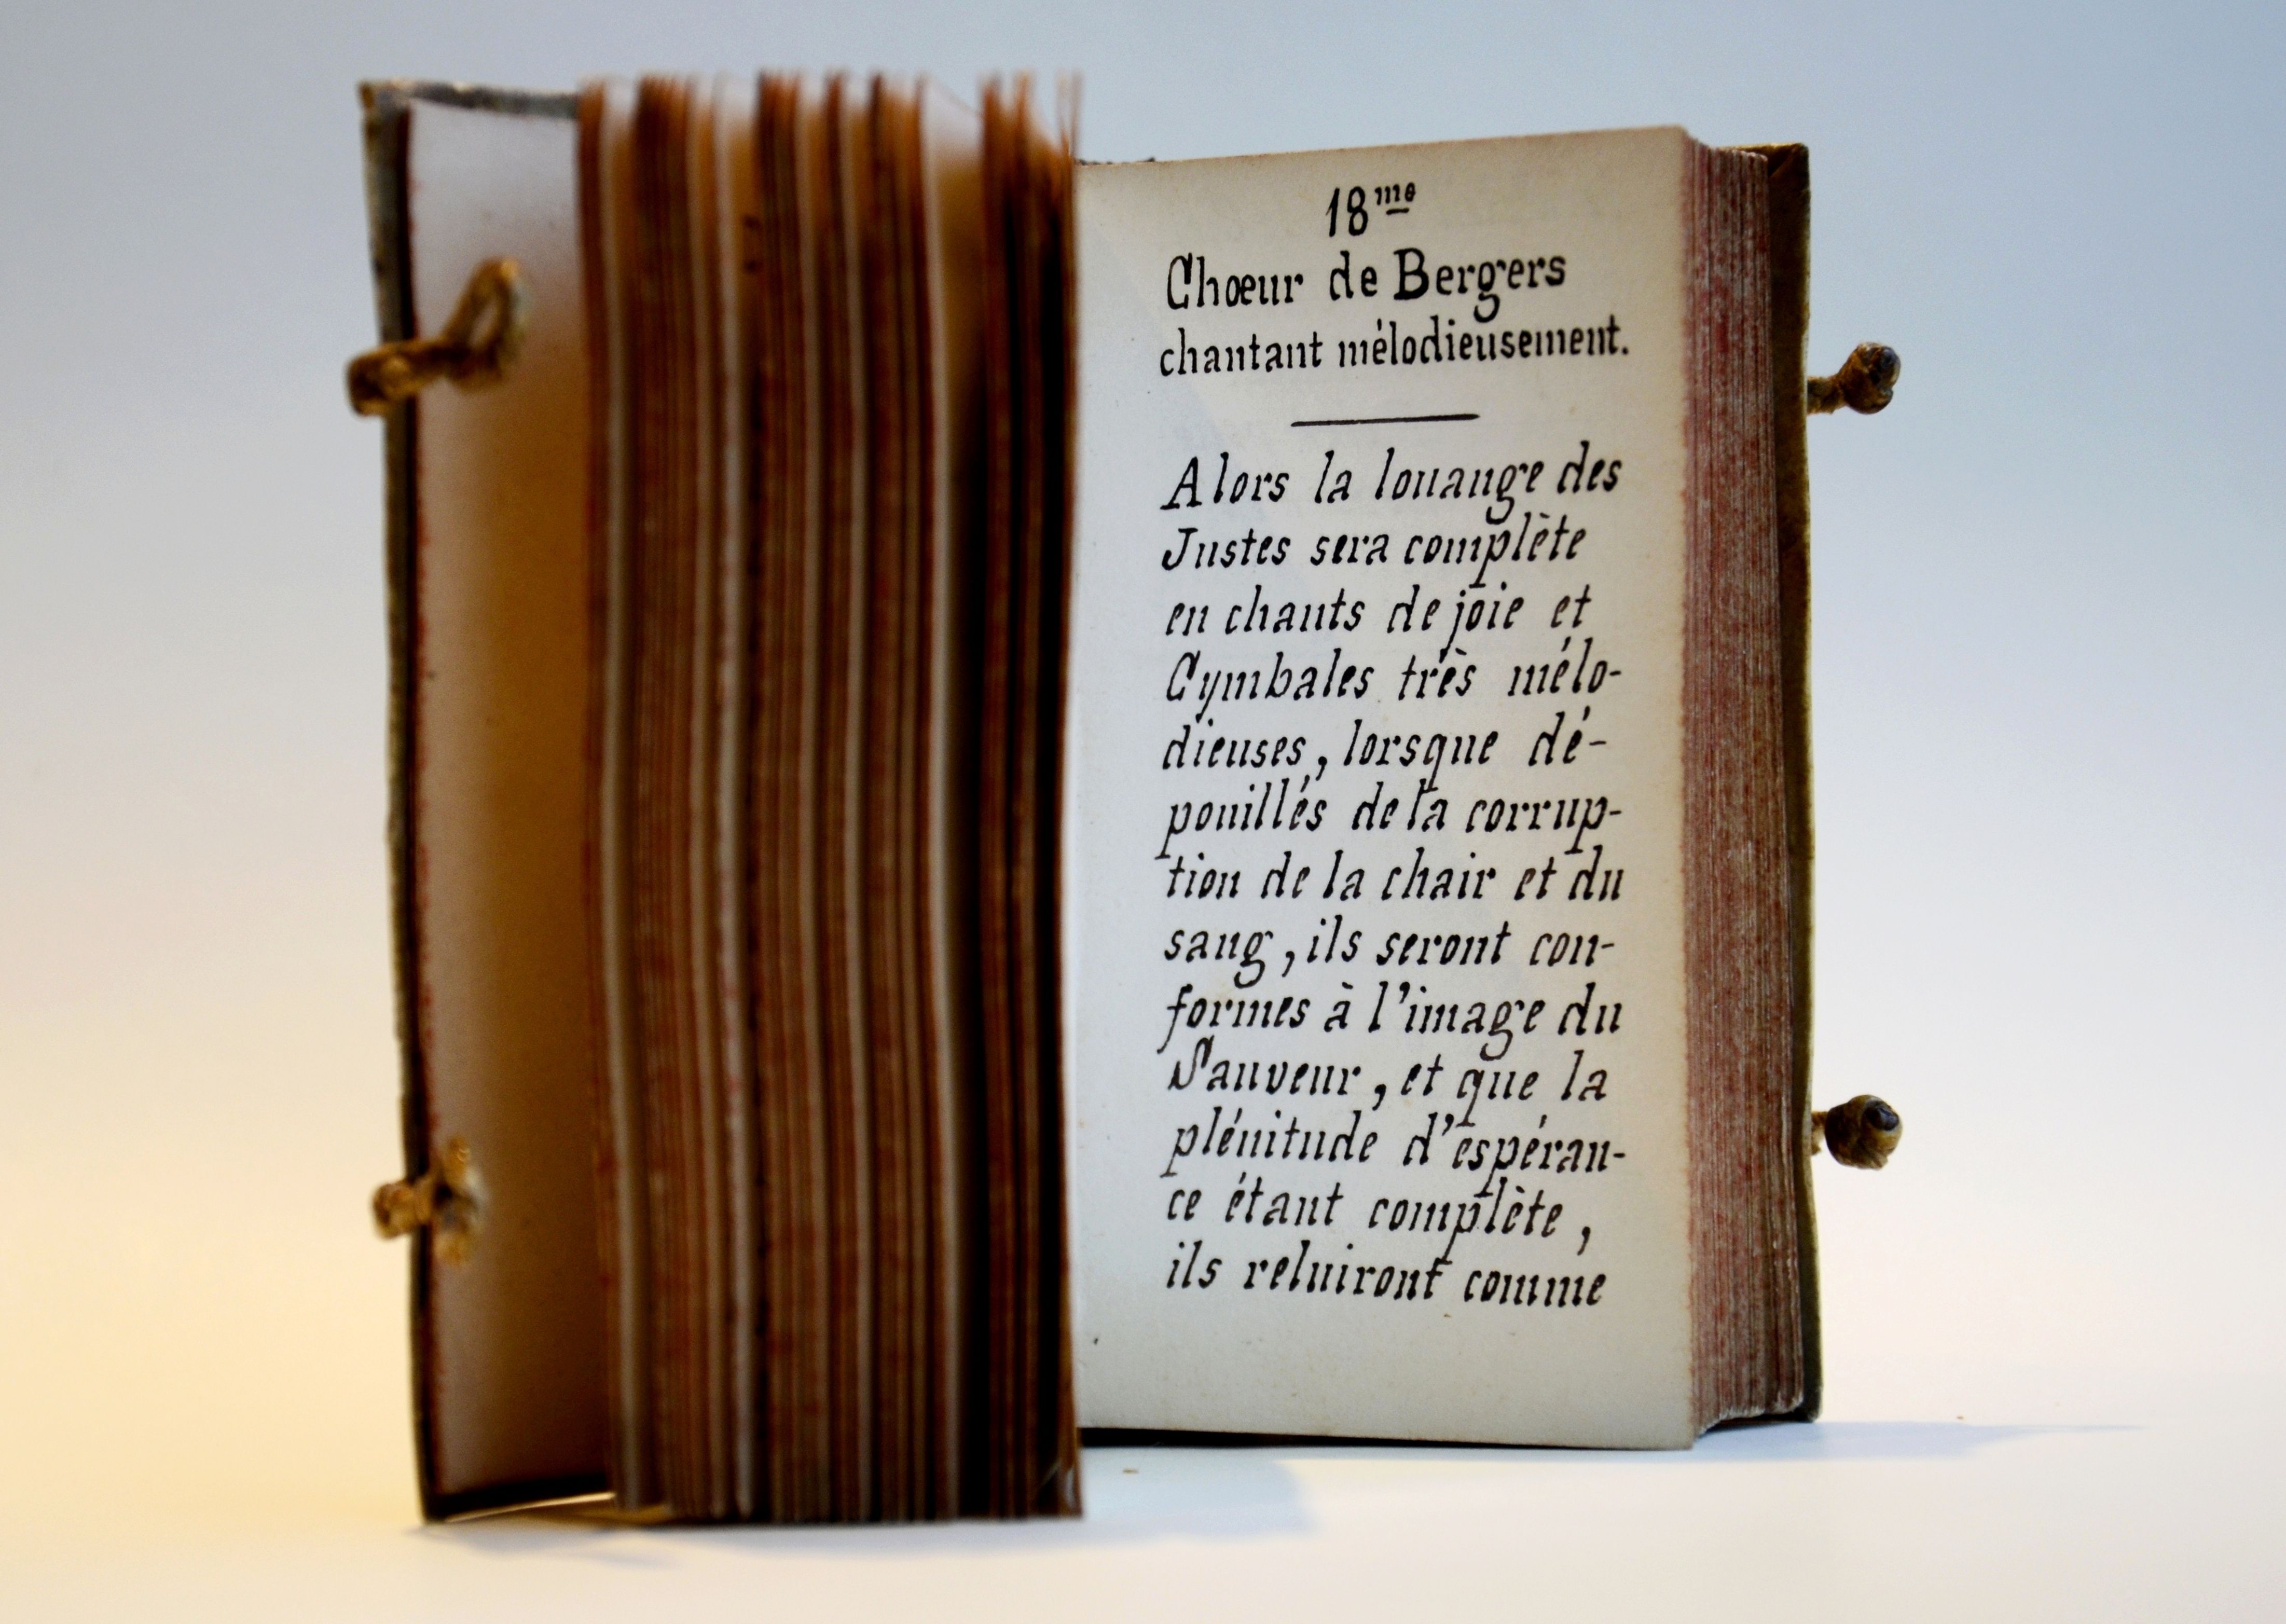 18me
Chœur de Bergers
chantant mélodieusement.
Alors la louange des
Justes sera complète
en chants de joie et
Cymbales très mélo-
dieuses, lorsque dé-
pouillés de la corrup-
tion de la chair et du
sang, ils seront con-
formes à l'image du
Sauveur, et que la
plénitude d'espéran-
ce étant complète,
ils reluiront comme